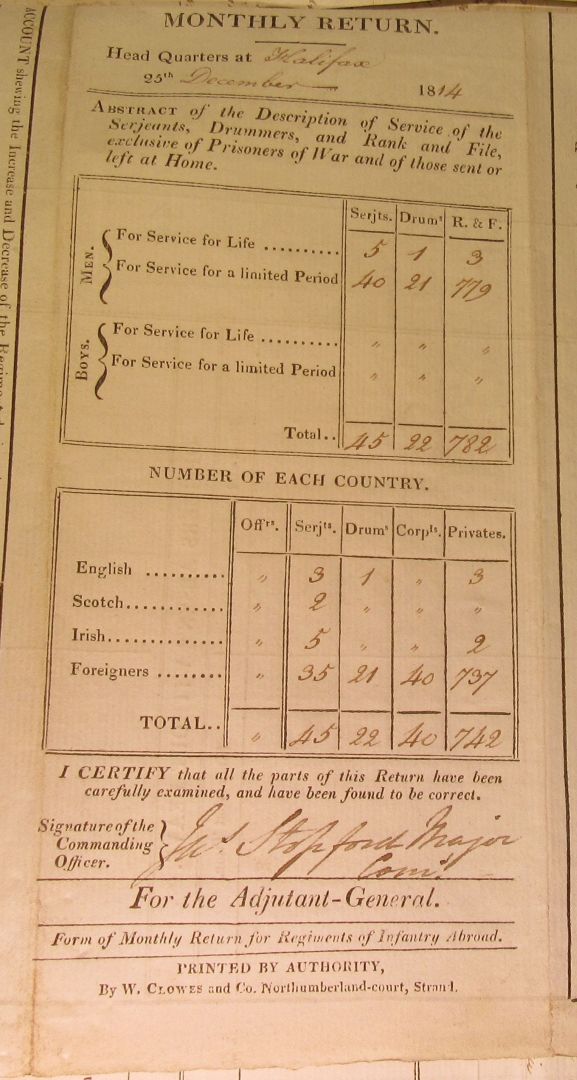 MONTHLY RETURN.
Head Quarters at Halifax
25th December 1814
ABSTRACT of the Description of Service of the
Serjeants, Drummers, and Rank and File,
exclusive of Prisoners of War and of those sent or
left at Home.
Serjts. Drums R. & F.
MEN.
For Service for Life .......... 5 1 3
For Service for a limited Period 40 21 779
BOYS.
For Service for Life .......... " " "
For Service for a limited Period " " "
Total.. 45 22 782
NUMBER OF EACH COUNTRY.
Offrs. Serjts. Drums Corpls. Privates.
English .......... " 3 1 " 3
Scotch............ " 2 " " "
Irish............. " 5 " " 2
Foreigners ........ " 35 21 40 737
TOTAL.. " 45 22 40 742
I CERTIFY that all the parts of this Return have been
carefully examined, and have been found to be correct.
Signature of the
Commanding
Officer.
Stopford Major
Com.
For the Adjutant-General.
Form of Monthly Return for Regiments of Infantry Abroad.
PRINTED BY AUTHORITY,
By W. CLOWES and Co. Northumberland-court, Strand.
ACCOUNT shewing the Increase and Decrease of the